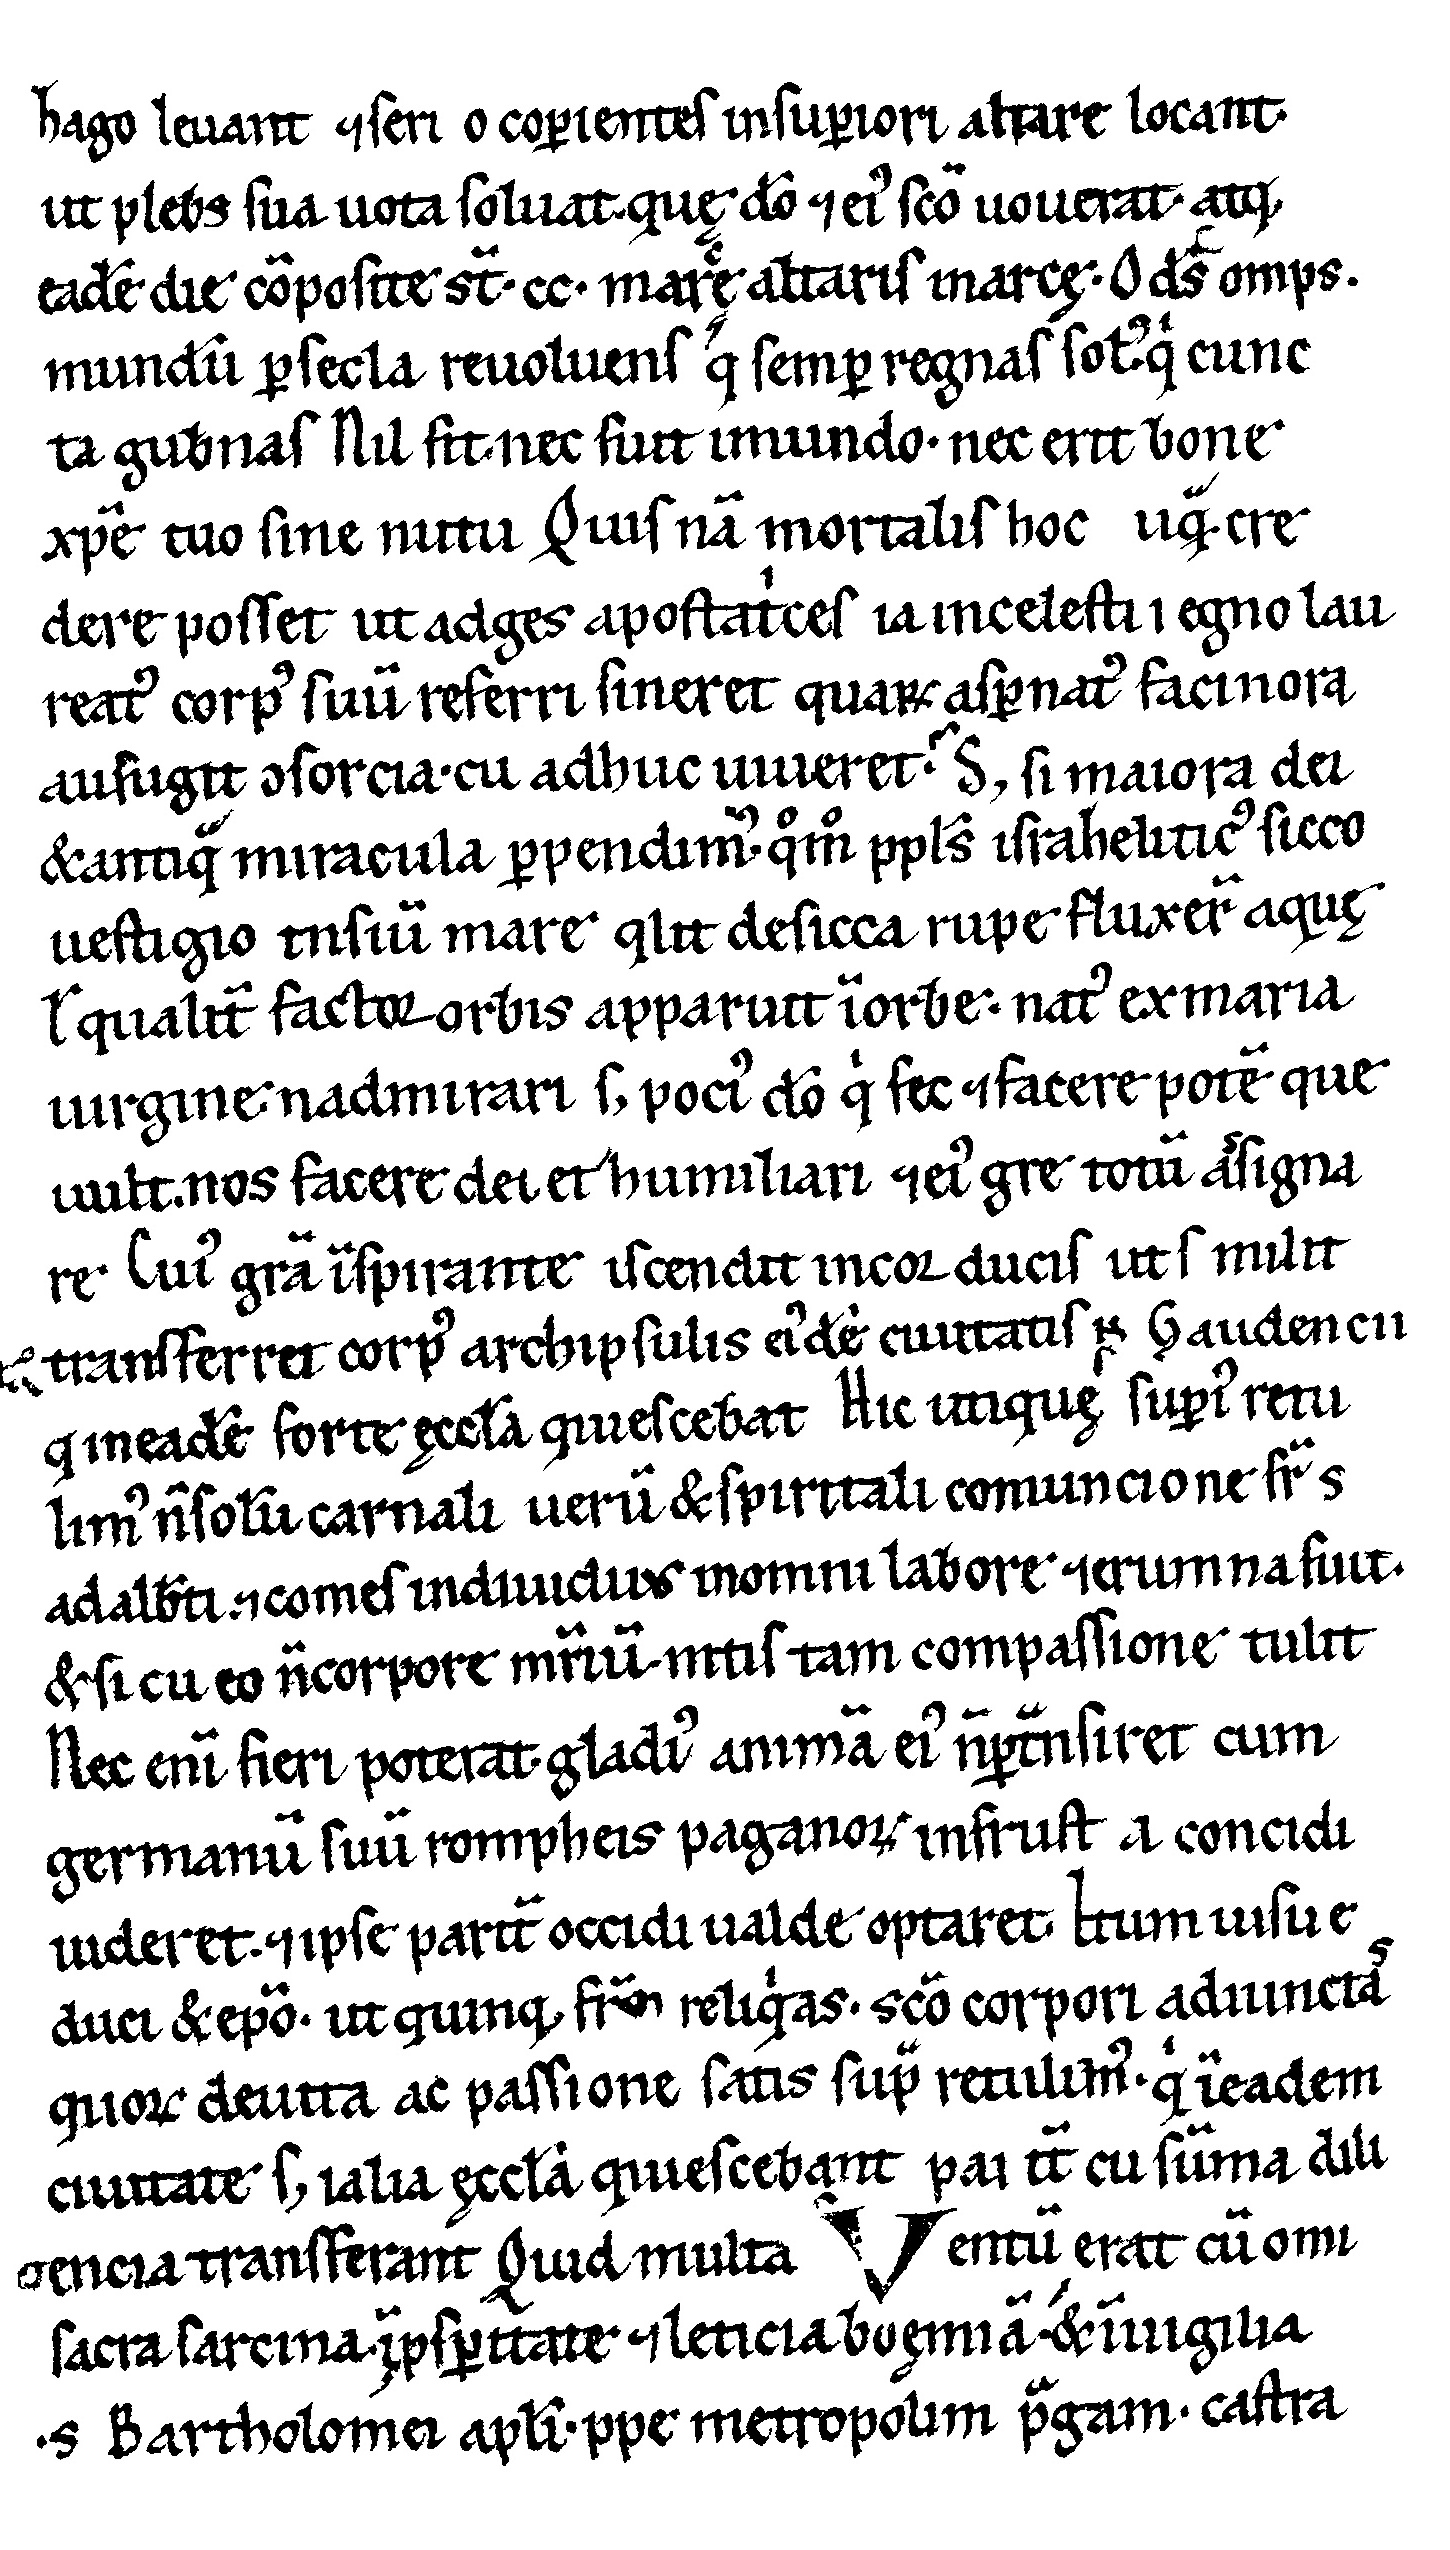 hago leuant ⁊ seri o coꝑientes insuꝑiori altare locant.
ut plebs sua uota soluat. quę dō ⁊ eiꝰ scō uouerat. atq;
eadē die cōposite st̄. cc. marcę altaris marcę. O ds omps.
mundū ꝑ secla reuoluens q semꝑ regnas solꝰ. qi cunc
ta gubnas Nil fit. nec fuit imundo. nec erit bone
xpē tuo sine nutu Quis nā mortalis hoc uq̄. cre
dere posset ut adges apostatices ia incelesti regno lau
reatꝰ corpꝰ suū referri sineret quaꝝ asꝑnatꝰ facinora
aufugit ɔsorcia. cu adhuc uiueret. S; si maiora dei
& antiq̄ miracula ꝑpendimꝰ. qom̊ ppls̄ israheliticꝰ sicco
uestigio tnsiu̅ mare qlit desicca rupe fluxer̄ aquę
l qualit̄ factor orbis apparuit īorbe. natꝰ ex maria
uirgine. n admirari s; pociꝰ dō qi fec ⁊ facere potē que
uult. nos facere dei et humiliari ⁊ eiꝰ gre totū assigna
re Cuiꝰ grā īspirante iscendit incor ducis ut s milit
transferret corpꝰ archipsulis eiꝰdē ciuitatis Gaudencii
q ineadē forte ęcclā quiescebat Hic utiquę suꝑiꝰ retu
limꝰ n̄ solū carnali uerū & spiritali comuncione fr̄ s
adalb̄ti. ⁊ comes indiuiduus inomni labore ⁊ erumna fuit.
& si cu eo n̄ corpore mr̄iū. mtis tam compassione tulit
Nec enī fieri poterat. gladiꝰ animā eiꝰ n̄ ꝑtn̄siret cum
germanū suū rompheis paganoꝝ infrust a concidi
uideret. ⁊ ipse parit̄ occidi ualde optaret. Itum uisu e
duci & epō. ut quinq; fr̄m reliqias. scō corpori adiunctas
quoꝝ deuita ac passione satis sup̄ retulimꝰ. qi īeadem
ciuitate s; ialia ęcclā quiescebant pari t̄ cu sūma dili
gencia transferant Quid multa Ventū erat cū omi
sacra sarcina. ī psꝑitate ⁊ leticia boęmiā. & ī uigilia
.s Bartholomei aplī. ppe metropolim p̄gam. castra